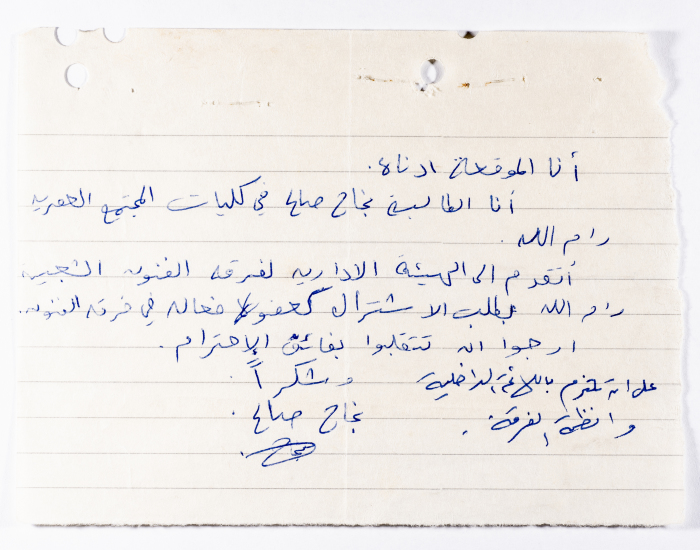 أنا الموقعة ادناه.
أنا الطالبة نجاح صالح في كليات المجتمع العصريه
رام الله.
أتقدم الى الهيئة الاداريه لفرقه الفنون الشعبيه
رام الله بطلب الاشتراك كعضوة فعاله في فرقه الفنون.
ارجوا ان تتقبلوا بفائق الإحترام.
على ان تلتزم باللائحة الداخلية وشكراً.
وانظمة الفرقة. نجاح صالح.
نجاح